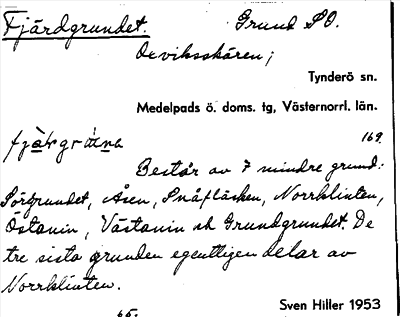 Fjärdgrundet. Grund SO.
Deviksskären;
Tynderö sn.
Medelpads ö. doms. tg, Västernorrl. län.
169.
Består av 7 mindre grund:
Sörgrundet, Åsen, Snåfläsken, Norrklinten,
Östanin, Västanin och Grundgrundet. De
tre sista grunden egentligen delar av
Norrklinten.
Sven Hiller 1953
65.